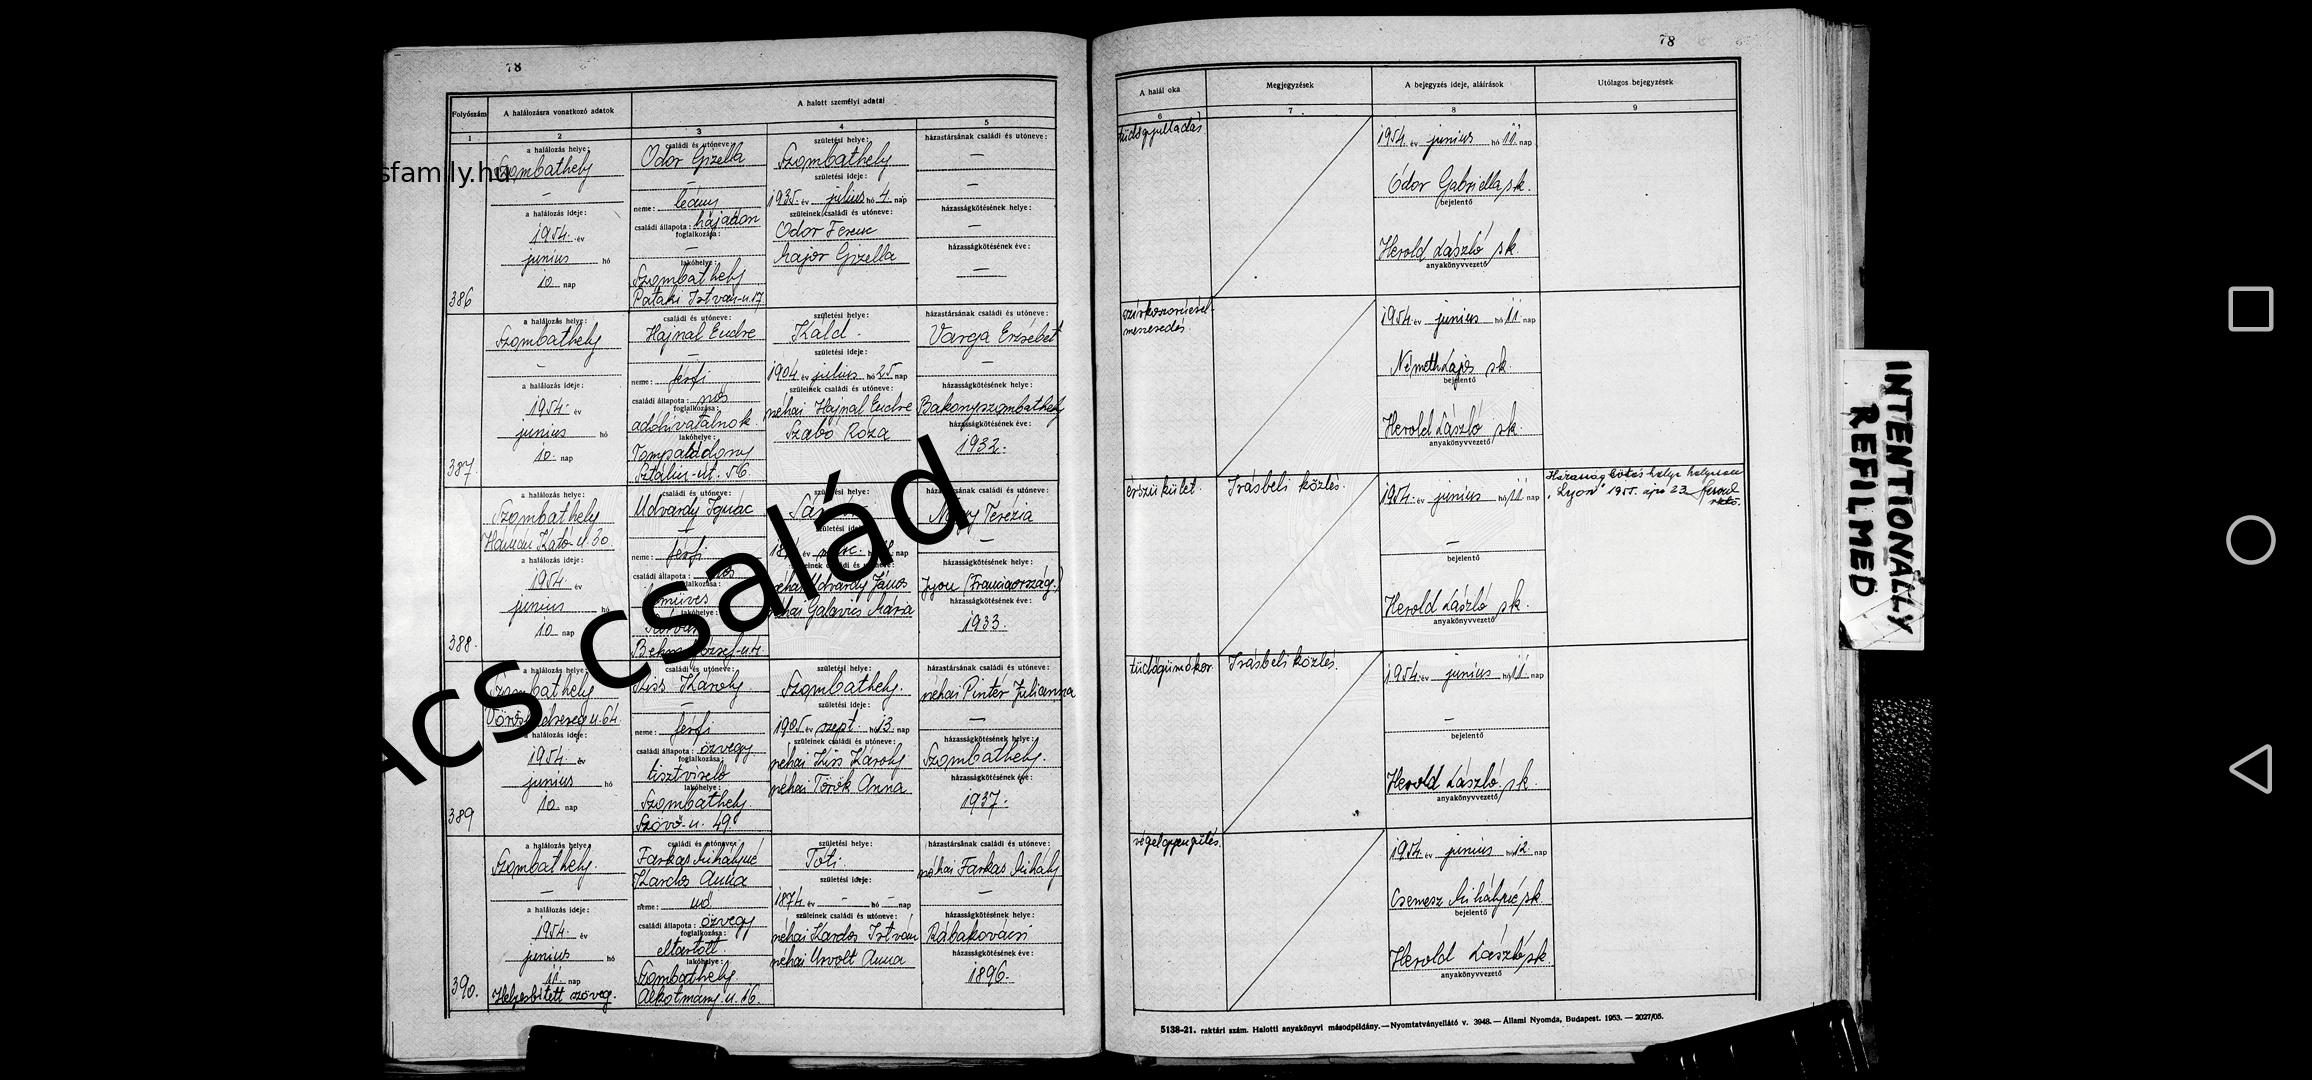 78
Folyószám
A halálozásra vonatkozó adatok
A halott személyi adatai
1
2
3
4
5
a halálozás helye:
Szombathely
—
a halálozás ideje:
1954. év
junius hó
10. nap
386
családi és utóneve:
Ódor Gizella
—
neme: leány
családi állapota: hajadon
foglalkozása:
—
lakóhelye:
Szombathely
Pataki István-u. 17.
születési helye:
Szombathely
születési ideje:
1935. év július hó 4. nap
szüleinek családi és utóneve:
Ódor Ferenc
Major Gizella
házastársának családi és utóneve:
—
—
házasságkötésének helye:
—
házasságkötésének éve:
—
a halálozás helye:
Szombathely
—
a halálozás ideje:
1954. év
junius hó
10. nap
387.
családi és utóneve:
Hajnal Endre
—
neme: férfi
családi állapota: nős
foglalkozása:
adóhivatalnok
lakóhelye:
Tompaládony
Sztálin-út. 56.
születési helye:
Káld.
születési ideje:
1904. év július hó 25. nap
szüleinek családi és utóneve:
néhai Hajnal Endre
Szabó Róza
házastársának családi és utóneve:
Varga Erzsébet
—
házasságkötésének helye:
Bakonyszombathely
házasságkötésének éve:
1932.
a halálozás helye:
Szombathely
Haman Kató u. 30.
a halálozás ideje:
1954. év
junius hó
10. nap
388.
családi és utóneve:
Udvardy Ignác
neme: férfi
családi állapota: nős
születési ideje:
márc. nap
néhai Udvardy János
néhai Galavics Mária
házastársának családi és utóneve:
Nagy Terézia
—
házasságkötésének helye:
Lyon (Franciaország.)
házasságkötésének éve:
1933.
a halálozás helye:
Szombathely
u. 64.
a halálozás ideje:
1954. év
junius hó
10. nap
389
családi és utóneve:
Kiss Károly
—
neme: férfi
családi állapota: özvegy
foglalkozása:
tisztviselő
lakóhelye:
Szombathely.
Szövő-u. 49.
születési helye:
Szombathely.
születési ideje:
1905. év szept. hó 13. nap
szüleinek családi és utóneve:
néhai Kiss Károly
néhai Török Anna
házastársának családi és utóneve:
néhai Pintér Julianna
—
házasságkötésének helye:
Szombathely.
házasságkötésének éve:
1937.
a halálozás helye:
Szombathely.
—
a halálozás ideje:
1954. év
junius hó
11. nap
Helyesbített szöveg.
390.
családi és utóneve:
Farkas Mihályné
Kardos Anna
neme: nő
családi állapota: özvegy
foglalkozása:
eltartott.
lakóhelye:
Szombathely.
Alkotmány. u. 16.
születési helye:
Tóti.
születési ideje:
1874. év — hó — nap
szüleinek családi és utóneve:
néhai Kardos István
néhai Urvolt Anna
házastársának családi és utóneve:
néhai Farkas Mihály
—
házasságkötésének helye:
Rábakovácsi
házasságkötésének éve:
1896.
78
A halál oka
Megjegyzések
A bejegyzés ideje, aláírások
Utólagos bejegyzések
6
7
8
9
tüdőgyulladás
1954. év junius hó 11. nap
Ódor Gabriella sk.
bejelentő
Herold László sk.
anyakönyvvezető
1954. év junius hó 11. nap
Németh Lajos sk.
bejelentő
Herold László sk.
anyakönyvvezető
érszűkület.
Írásbeli közlés.
1954. év junius hó 11. nap
—
bejelentő
Herold László sk.
anyakönyvvezető
Házasság kötés helye helyesen
"Lyon" 1955. ápr 23.
tüdőgümőkor.
Írásbeli közlés.
1954. év junius hó 11. nap
—
bejelentő
Herold László sk.
anyakönyvvezető
végelgyengülés.
1954. év junius hó 12. nap
Csemesz Mihályné sk.
bejelentő
Herold László sk.
anyakönyvvezető
5138-21. raktári szám. Halotti anyakönyvi másodpéldány.—Nyomtatványellátó v. 3948.—Állami Nyomda, Budapest. 1953. — 2027/05.
INTENTIONALLY
REFILMED
sfamily.hu
ács család